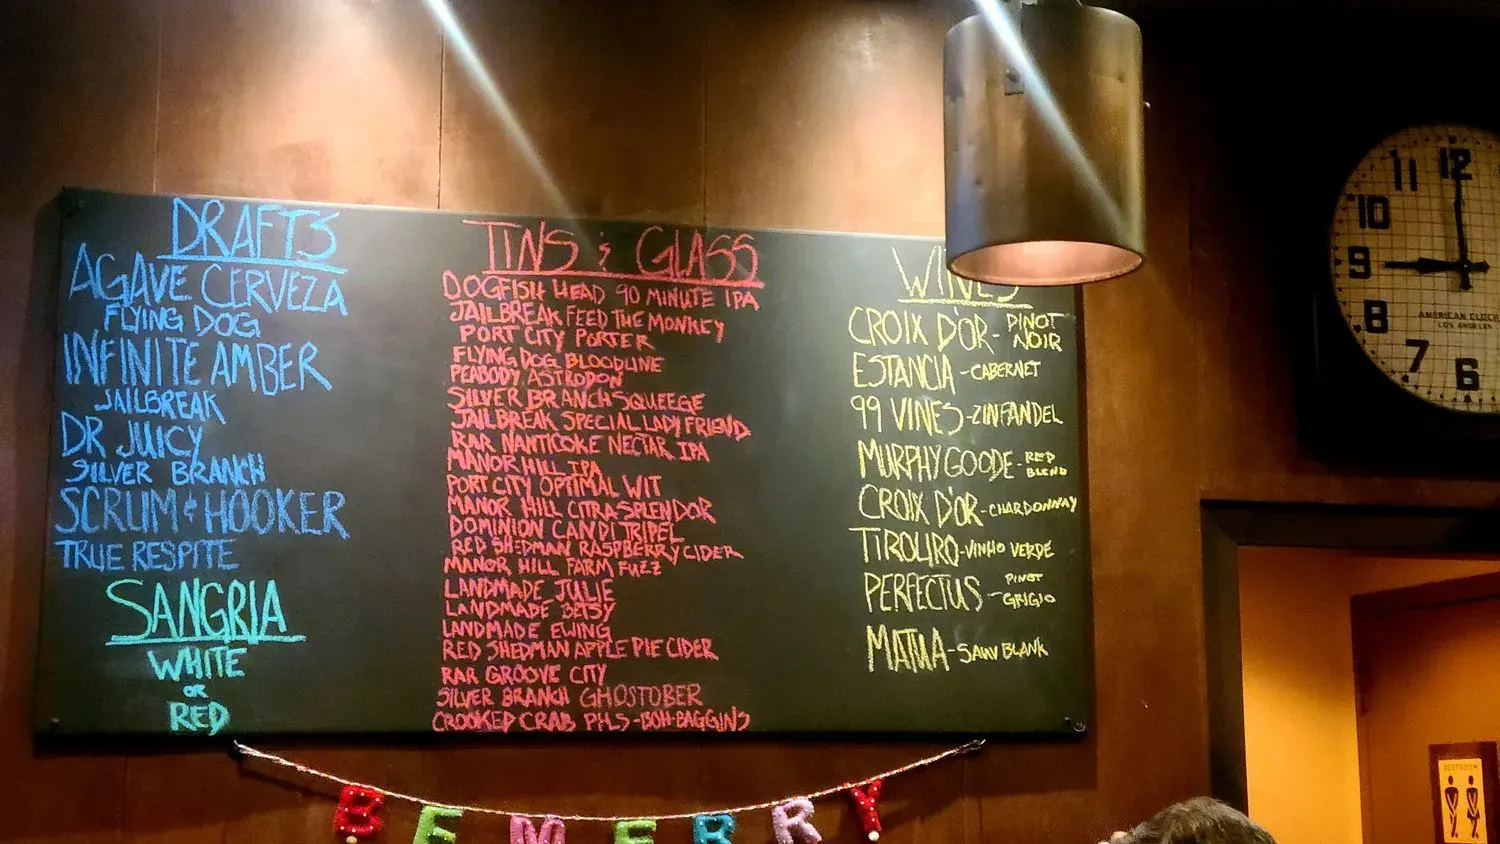 DRAFTS
AGAVE CERVEZA
FLYING DOG
INFINITE AMBER
JAILBREAK
DR JUICY
SILVER BRANCH
SCRUM & HOOKER
TRUE RESPITE
SANGRIA
WHITE
OR
RED
TINS & GLASS
DOGFISH HEAD 90 MINUTE IPA
JAILBREAK FEED THE MONKEY
PORT CITY PORTER
FLYING DOG BLOODLINE
PEABODY ASTRODON
SILVER BRANCH SQUEEGE
JAILBREAK SPECIAL LADY FRIEND
RAR NANTICOKE NECTAR IPA
MANOR HILL IPA
PORT CITY OPTIMAL WIT
MANOR HILL CITRA SPLENDOR
DOMINION CANDI TRIPEL
RED SHEDMAN RASPBERRY CIDER
MANOR HILL FARM FUZZ
LANDMADE JULIE
LANDMADE BETSY
LANDMADE EWING
RED SHEDMAN APPLE PIE CIDER
RAR GROOVE CITY
SILVER BRANCH GHOSTOBER
CROOKED CRAB PHLS-BOH-BAGGINS
WINES
CROIX D'OR - PINOT
NOIR
ESTANCIA - CABERNET
99 VINES - ZINFANDEL
MURPHY GOODE - RED
BLEND
CROIX D'OR - CHARDONNAY
TIROLIRO - VINHO VERDE
PERFECTUS - PINOT
GRIGIO
MATUA - SAUV BLANK
BE MERRY
12
11
10
9
8
7
6
AMERICAN CLOCK
LOS ANGELES
RESTROOM